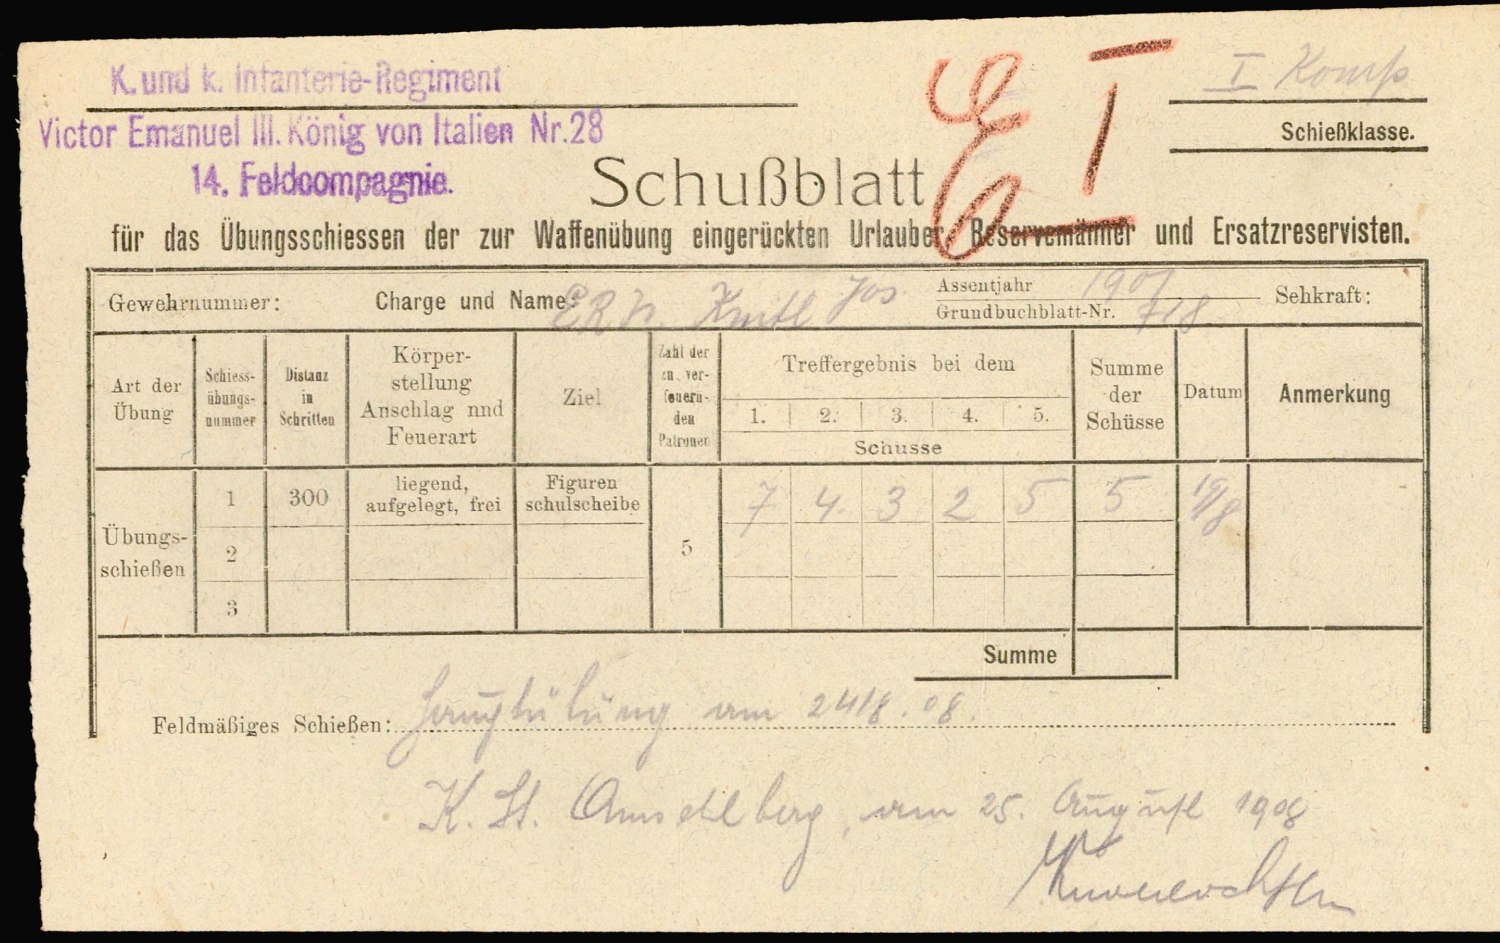 K. und k. Infanterie-Regiment
Victor Emanuel III. König von Italien Nr. 28
14. Feldcompagnie.
E I
I Komp
Schießklasse.
Schußblatt
für das Übungsschiessen der zur Waffenübung eingerückten Urlauber, Reservemänner und Ersatzreservisten.
Gewehrnummer:
Charge und Name:
Jos
Assentjahr 1907
Grundbuchblatt-Nr. 718
Sehkraft:
Art der Übung
Schiess-übungs-nummer
Distanz in Schritten
Körper-stellung Anschlag nnd Feuerart
Ziel
Zahl der zu ver-feuern-den Patronen
Treffergebnis bei dem
1. 2. 3. 4. 5.
Schusse
Summe der Schüsse
Datum
Anmerkung
Übungs-schießen
1 300 liegend, aufgelegt, frei Figuren schulscheibe 5 7 4 3 2 5 5 19/8
2
3
Summe
Feldmäßiges Schießen: am 24/8. 08.
K. St. am 25. August 1908